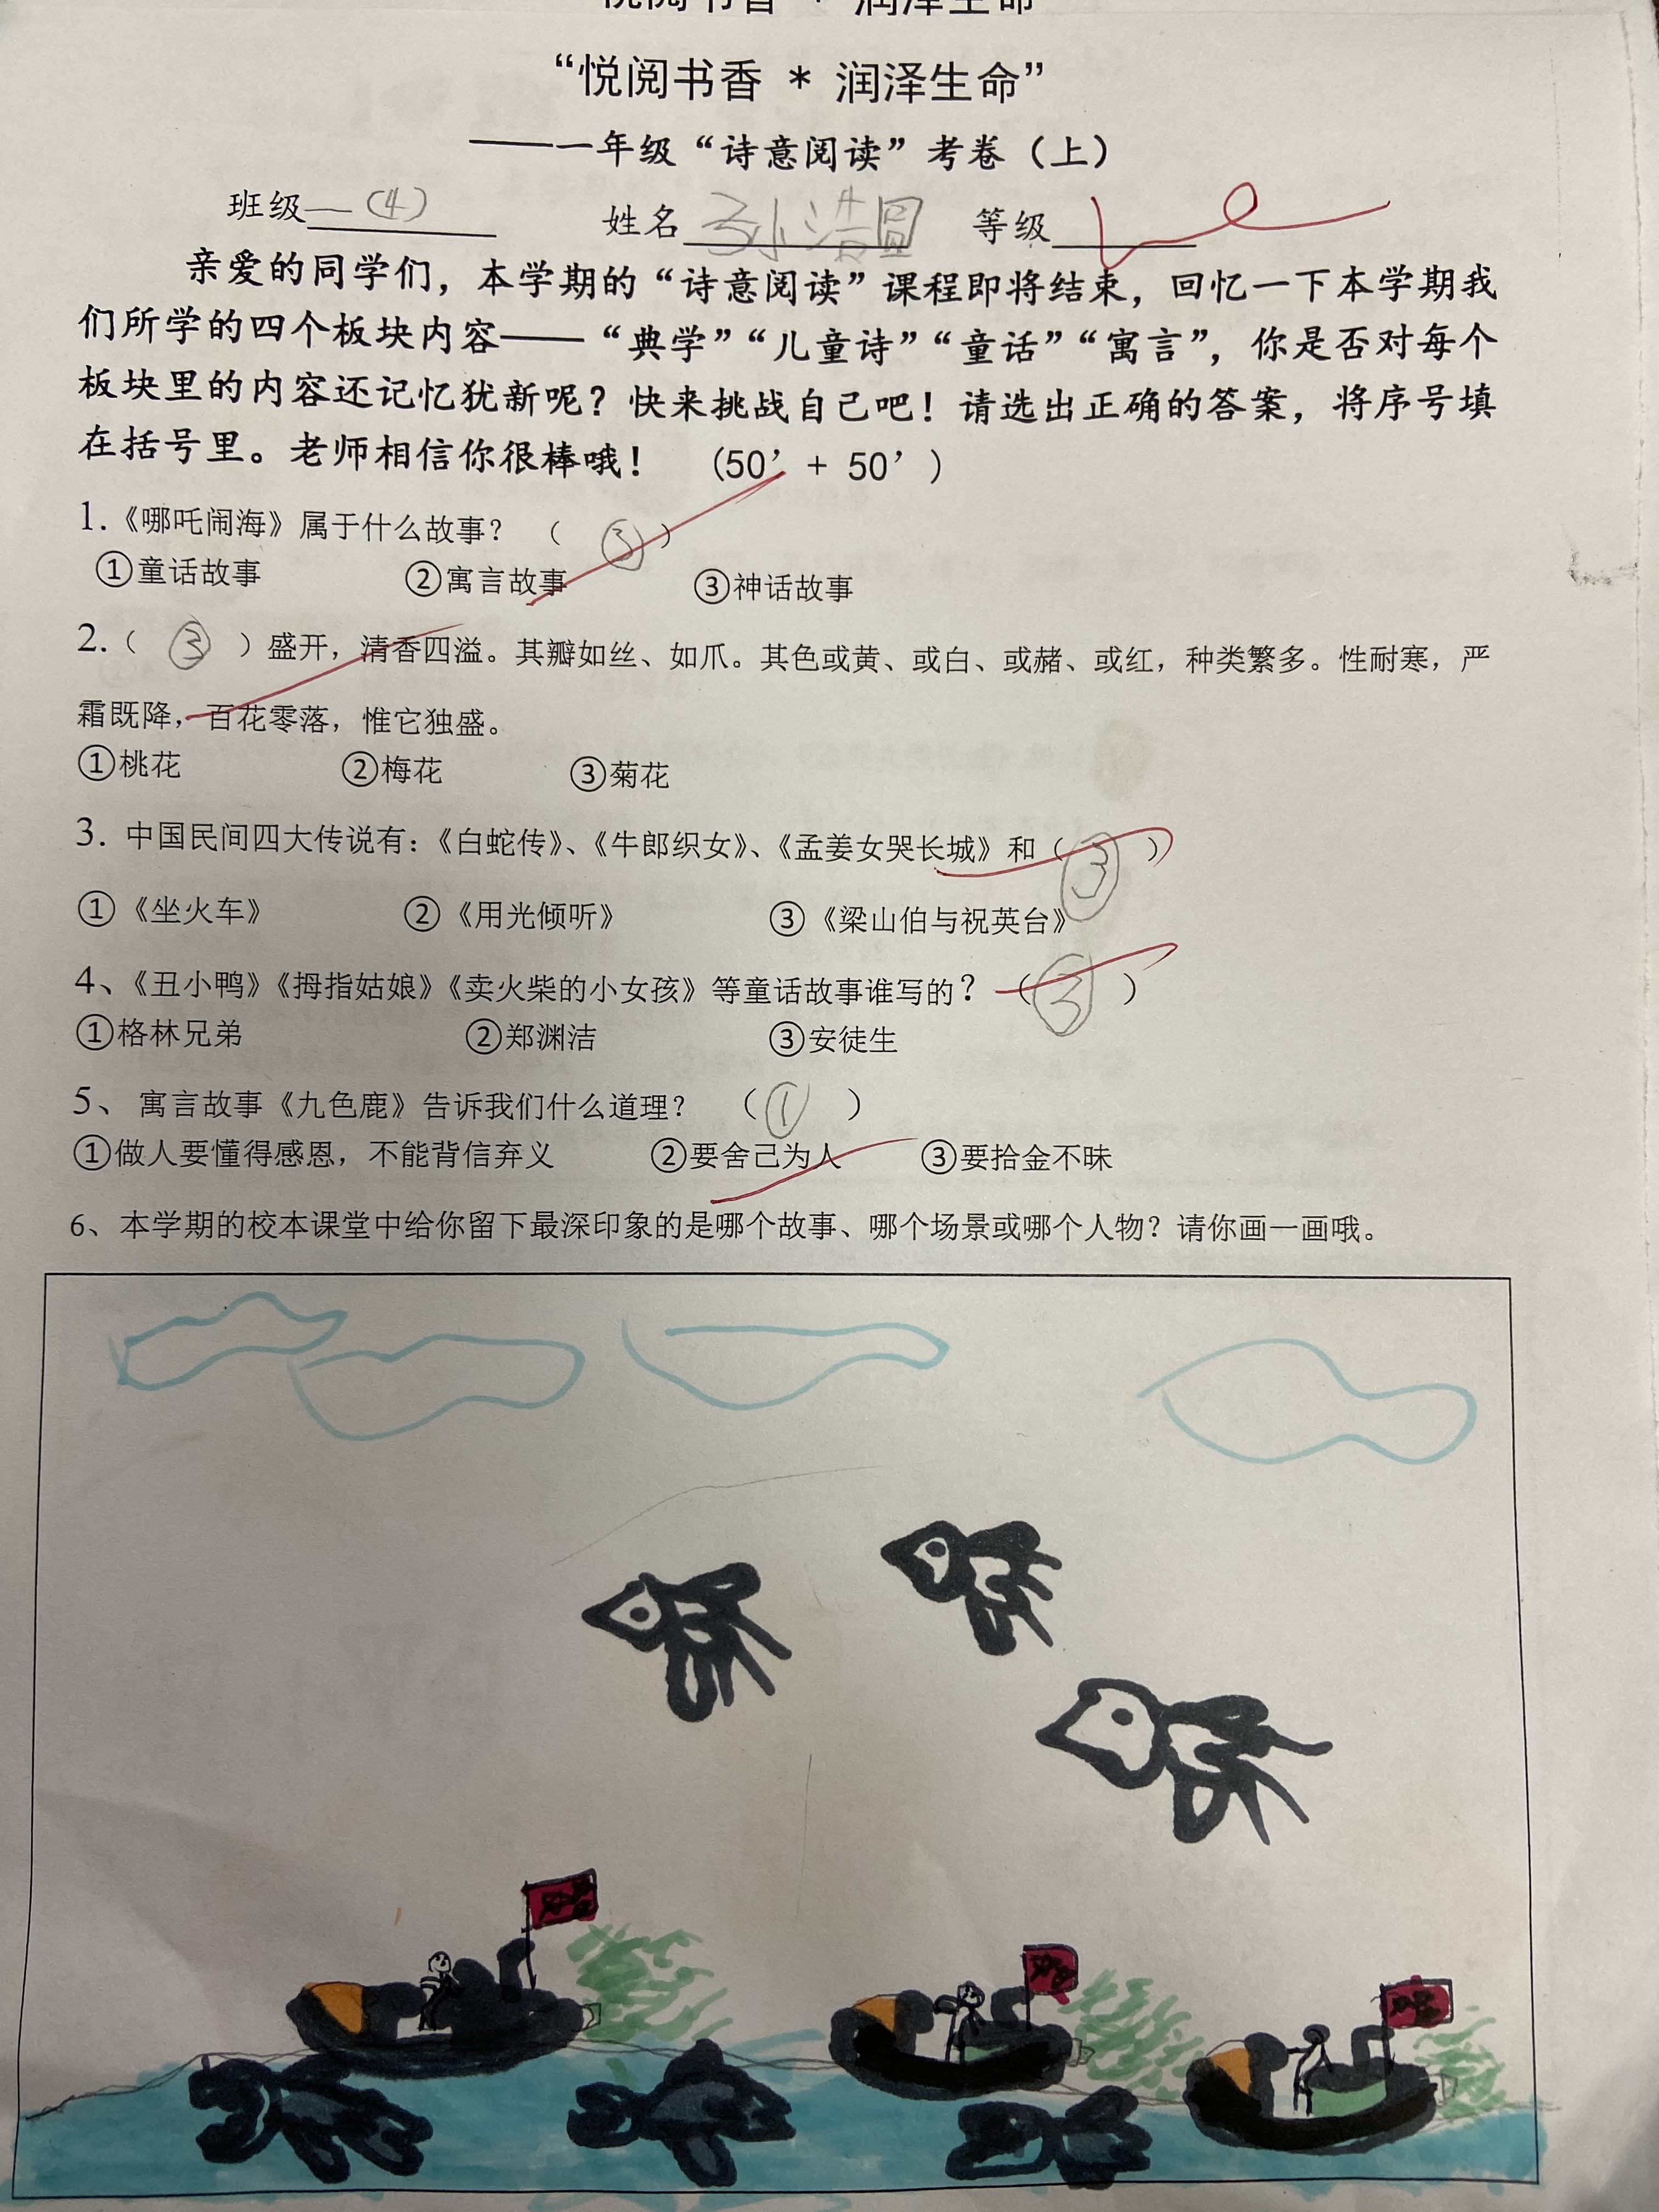 悦阅书香 * 润泽生命
“悦阅书香 * 润泽生命”
——一年级“诗意阅读”考卷（上）
班级一（4） 姓名孙浩圆 等级
亲爱的同学们，本学期的“诗意阅读”课程即将结束，回忆一下本学期我
们所学的四个板块内容——“典学”“儿童诗”“童话”“寓言”，你是否对每个
板块里的内容还记忆犹新呢？快来挑战自己吧！请选出正确的答案，将序号填
在括号里。老师相信你很棒哦！ （50’+ 50’）
1.《哪吒闹海》属于什么故事？ （ ③ ）
①童话故事 ②寓言故事 ③神话故事
2.（ ③ ）盛开，清香四溢。其瓣如丝、如爪。其色或黄、或白、或赭、或红，种类繁多。性耐寒，严
霜既降，百花零落，惟它独盛。
①桃花 ②梅花 ③菊花
3. 中国民间四大传说有：《白蛇传》、《牛郎织女》、《孟姜女哭长城》和（ ③ ）
①《坐火车》 ②《用光倾听》 ③《梁山伯与祝英台》
4、《丑小鸭》《拇指姑娘》《卖火柴的小女孩》等童话故事谁写的？（ ③ ）
①格林兄弟 ②郑渊洁 ③安徒生
5、 寓言故事《九色鹿》告诉我们什么道理？ （ ① ）
①做人要懂得感恩，不能背信弃义 ②要舍己为人 ③要拾金不昧
6、本学期的校本课堂中给你留下最深印象的是哪个故事、哪个场景或哪个人物？请你画一画哦。